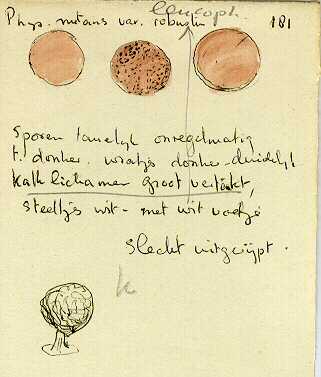 leucoph.
Phys. nutans var. robustum 181
Sporen tamelijk onregelmatig
t. donker. wratjes donker - duidelijk
kalklichamen groot vertakt,
steeltjes wit - met wit voetje
Slecht uitgerijpt.